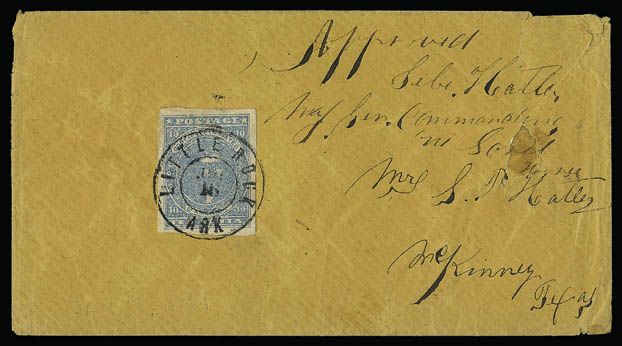 Approved
Sebe. Hatler
Maj Gen. Commanding
Mrs S. P Hatler
McKinney
Texas
POSTAGE
10 10
LITTLE ROCK
ARK
10